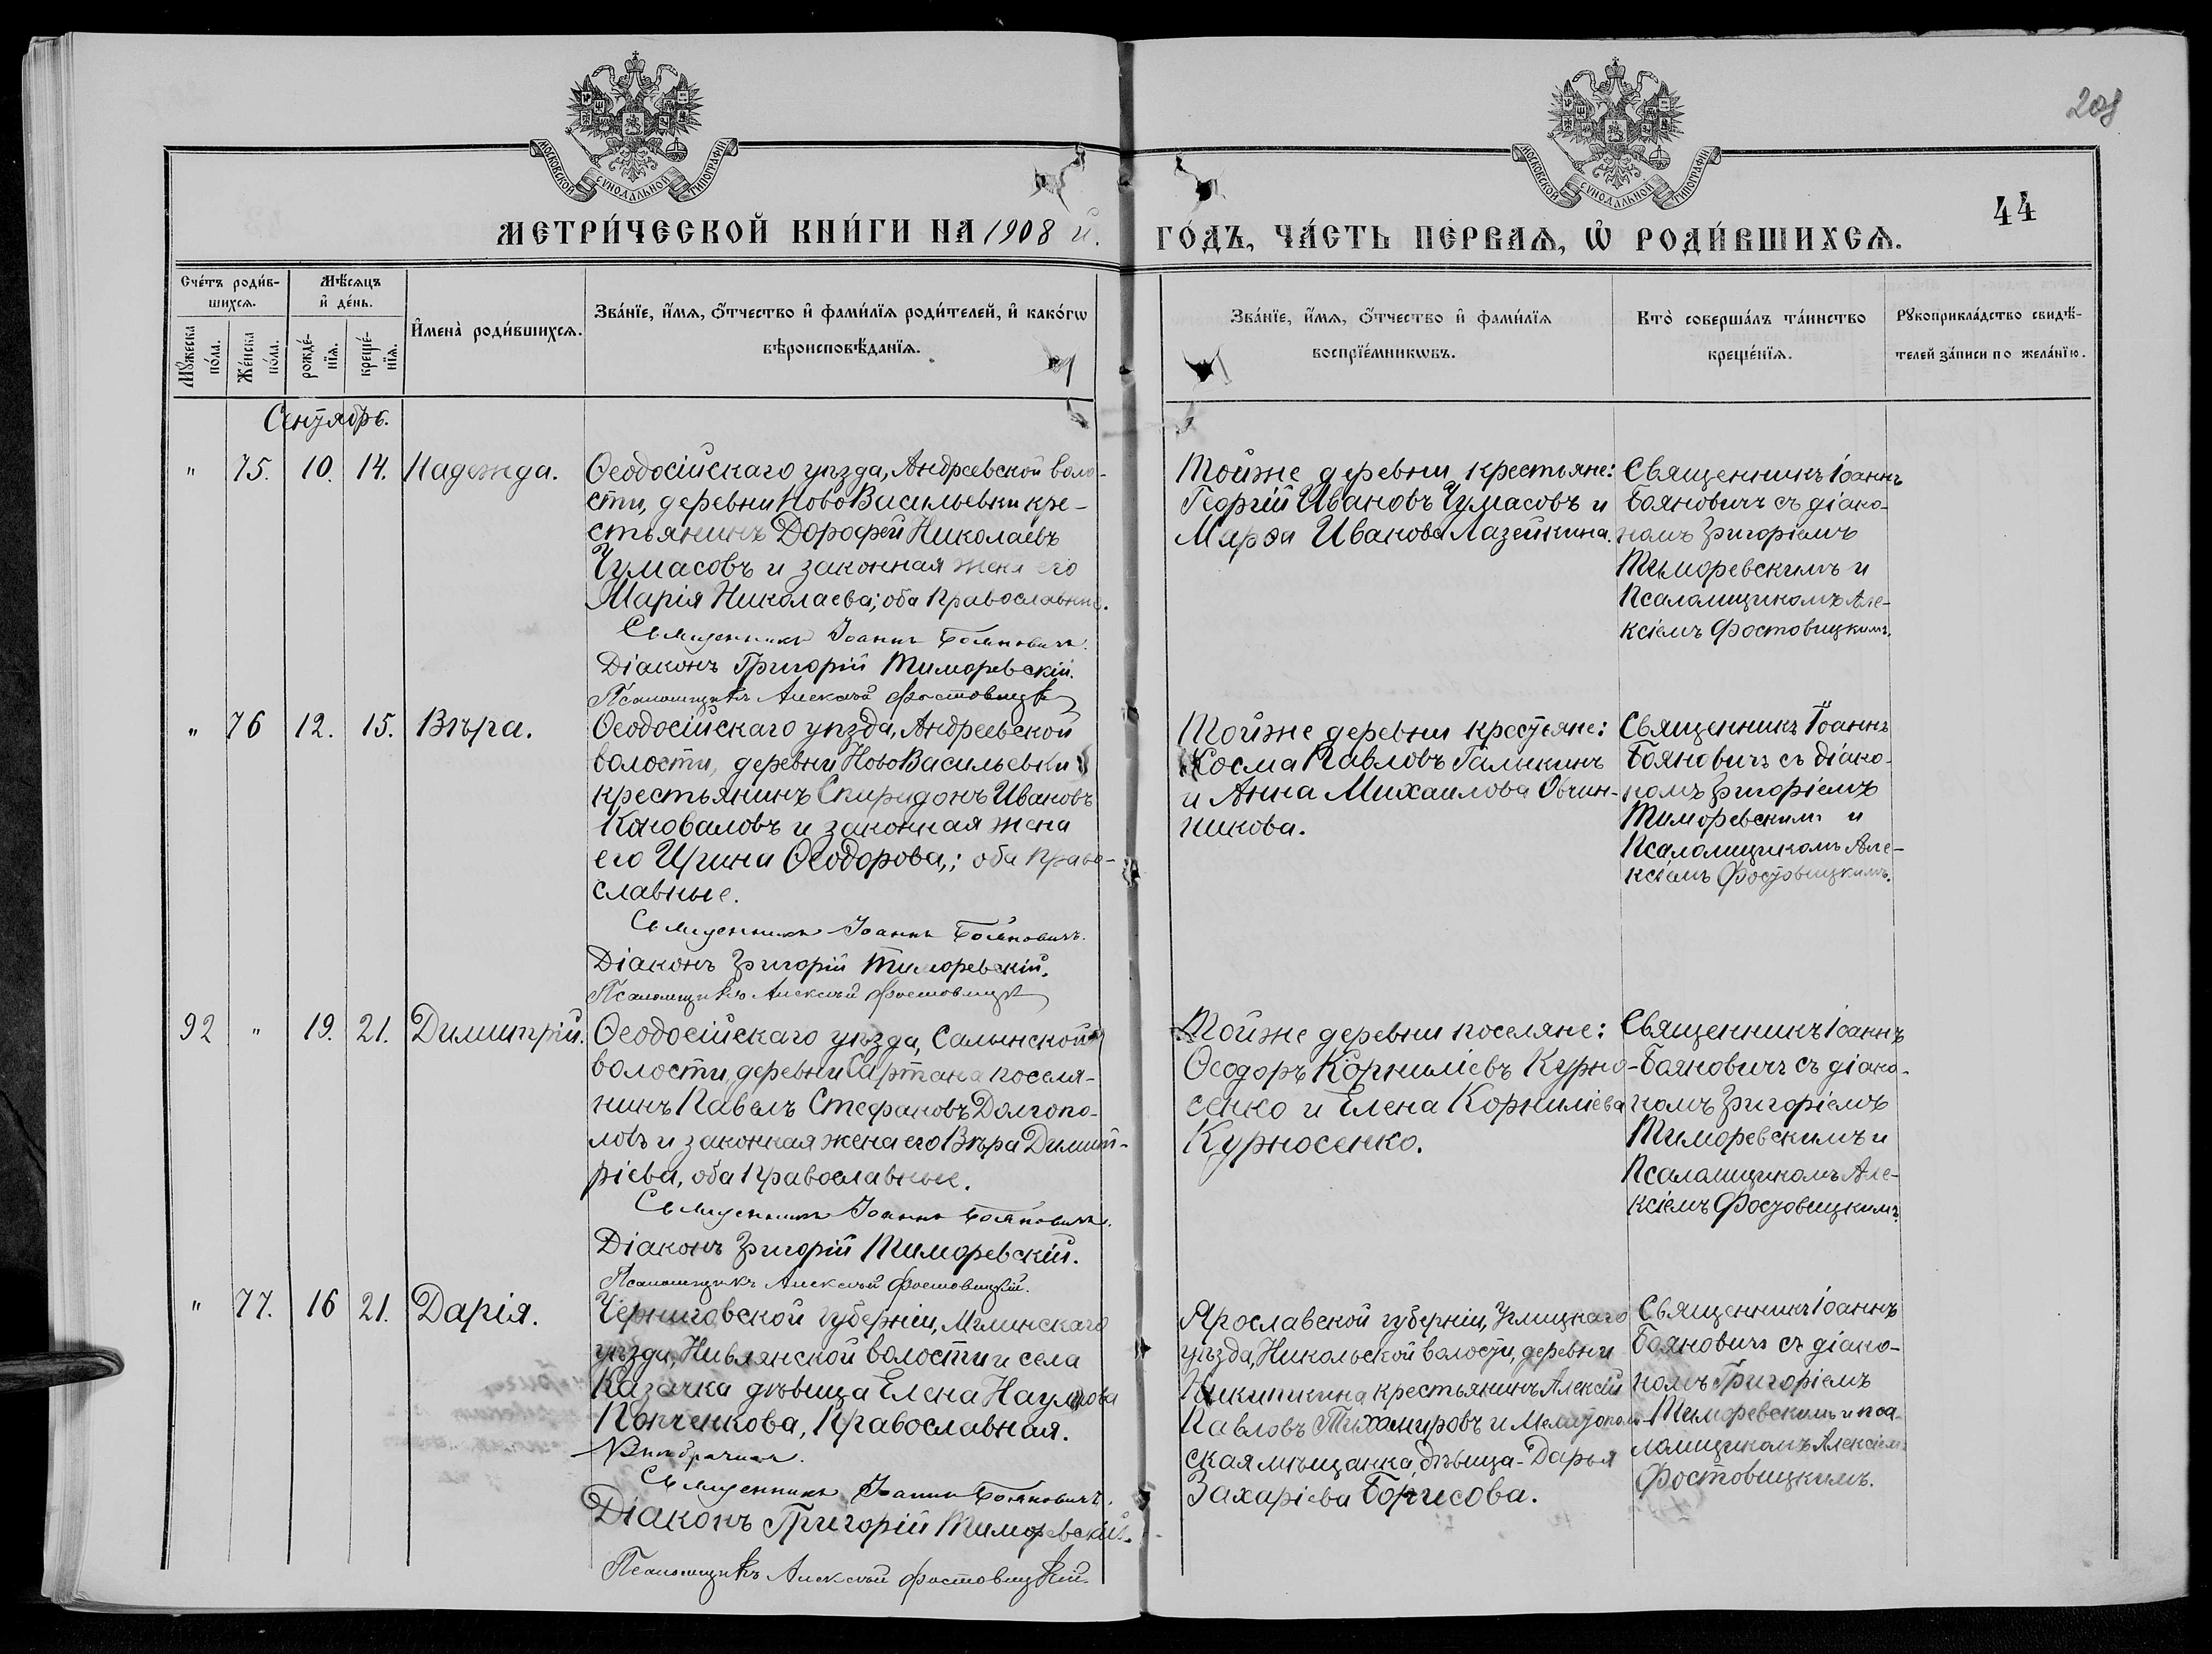 208
МОСКОВСКОЙ СѴНОДАЛЬНОЙ ТИПОГРАФІИ
МОСКОВСКОЙ СѴНОДАЛЬНОЙ ТИПОГРАФІИ
44
МЕТРИ́ЧЕСКОЙ КНИ́ГИ НА 1908 й.
ГО́ДЪ, ЧА́СТЬ ПЕ́РВАѦ, Ѡ҆ РОДИ́ВШИХСѦ.
Сче́тъ роди́в-
шихсѧ.
Мѣ́сѧцъ
и҆ де́нь.
Мꙋ́жеска по́ла.
Же́нска по́ла.
рожде́-
нїѧ.
креще́-
нїѧ.
И҆мена̀ роди́вшихсѧ.
Зва́нїе, и҆́мѧ, ѻ҆́тчество и҆ фами́лїѧ роди́телей, и҆ како́гѡ
вѣроисповѣ́данїѧ.
Зва́нїе, и҆́мѧ, ѻ҆́тчество и҆ фами́лїѧ
воспрїе́мникѡвъ.
Кто̀ соверша́лъ та́инство
креще́нїѧ.
Рꙋкоприкла́дство свидѣ́-
телей за́писи по жела́нїю.
Сентябрь.
" 75. 10. 14. Надежда.
Ѳеодосійскаго уѣзда, Андреевской воло-
сти, деревни НовоВасильевки кре-
стьянинъ Дорофей Николаевъ
Чумасовъ и законная жена его
Марія Николаева; оба православные.
Священникъ Іоаннъ Бояновичъ.
Діаконъ Григорій Тиморевскій.
Псаломщикъ Алексѣй Фостовицкій
Тойже деревни крестьяне:
Георгій Ивановъ Чумасовъ и
Марѳа Иванова Лазейкина.
Священникъ Іоаннъ
Бояновичъ съ діако-
номъ Григоріемъ
Тиморевскимъ и
Псаломщикомъ Але-
ксіемъ Фостовицкимъ.
" 76 12. 15. Вѣра.
Ѳеодосійскаго уѣзда, Андреевской
волости, деревни НовоВасильевки
крестьянинъ Спиридонъ Ивановъ
Коноваловъ и законная жена
его Ирина Ѳеодорова,; оба право-
славные.
Священникъ Іоаннъ Бояновичъ.
Діаконъ Григорій Тиморевскій.
Псаломщикъ Алексѣй Фостовицкій
Тойже деревни крестьяне:
Косма Павловъ Галыкинъ
и Анна Михаилова Овчин-
никова.
Священникъ Іоаннъ
Бояновичъ съ діако-
номъ Григоріемъ
Тиморевскимъ и
Псаломщикомъ Але-
ксіемъ Фостовицкимъ.
92 " 19. 21. Димитрій.
Ѳеодосійскаго уѣзда, Салынской
волости, деревни Сартана поселя-
нинъ Павелъ Стефановъ Долгопо-
ловъ и законная жена его Вѣра Димит-
ріева, оба Православные.
Священникъ Іоаннъ Бояновичъ.
Діаконъ Григорій Тиморевскій.
Псаломщикъ Алексѣй Фостовицкій.
Тойже деревни поселяне:
Ѳеодоръ Корниліевъ Курно-
сенко и Елена Корниліева
Курносенко.
Священникъ Іоаннъ
Бояновичъ съ діако-
номъ Григоріемъ
Тиморевскимъ и
Псаломщикомъ Але-
ксіемъ Фостовицкимъ.
" 77. 16 21. Дарія.
Черниговской губерніи, Мглинскаго
уѣзда, Нивлянской волости и села
Казачка дѣвица Елена Наумова
Конченкова, Православная.
Внѣбрачная.
Священникъ Іоаннъ Бояновичъ.
Діаконъ Григорій Тиморевскій.
Псаломщикъ Алексѣй Фостовицкій.
Ярославской губерніи, Углицкаго
уѣзда, Никольской волости, деревни
крестьянинъ Алексѣй
Павловъ Тихомировъ и Мелитополь-
ская мѣщанка, дѣвица - Дарья
Захаріева Борисова.
Священникъ Іоаннъ
Бояновичъ съ діако-
номъ Григоріемъ
Тиморевскимъ и пса-
ломщикомъ Алексіемъ
Фостовицкимъ.